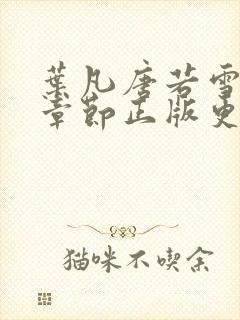 葉凡唐若雪
章節正版更
猫咪不喫余